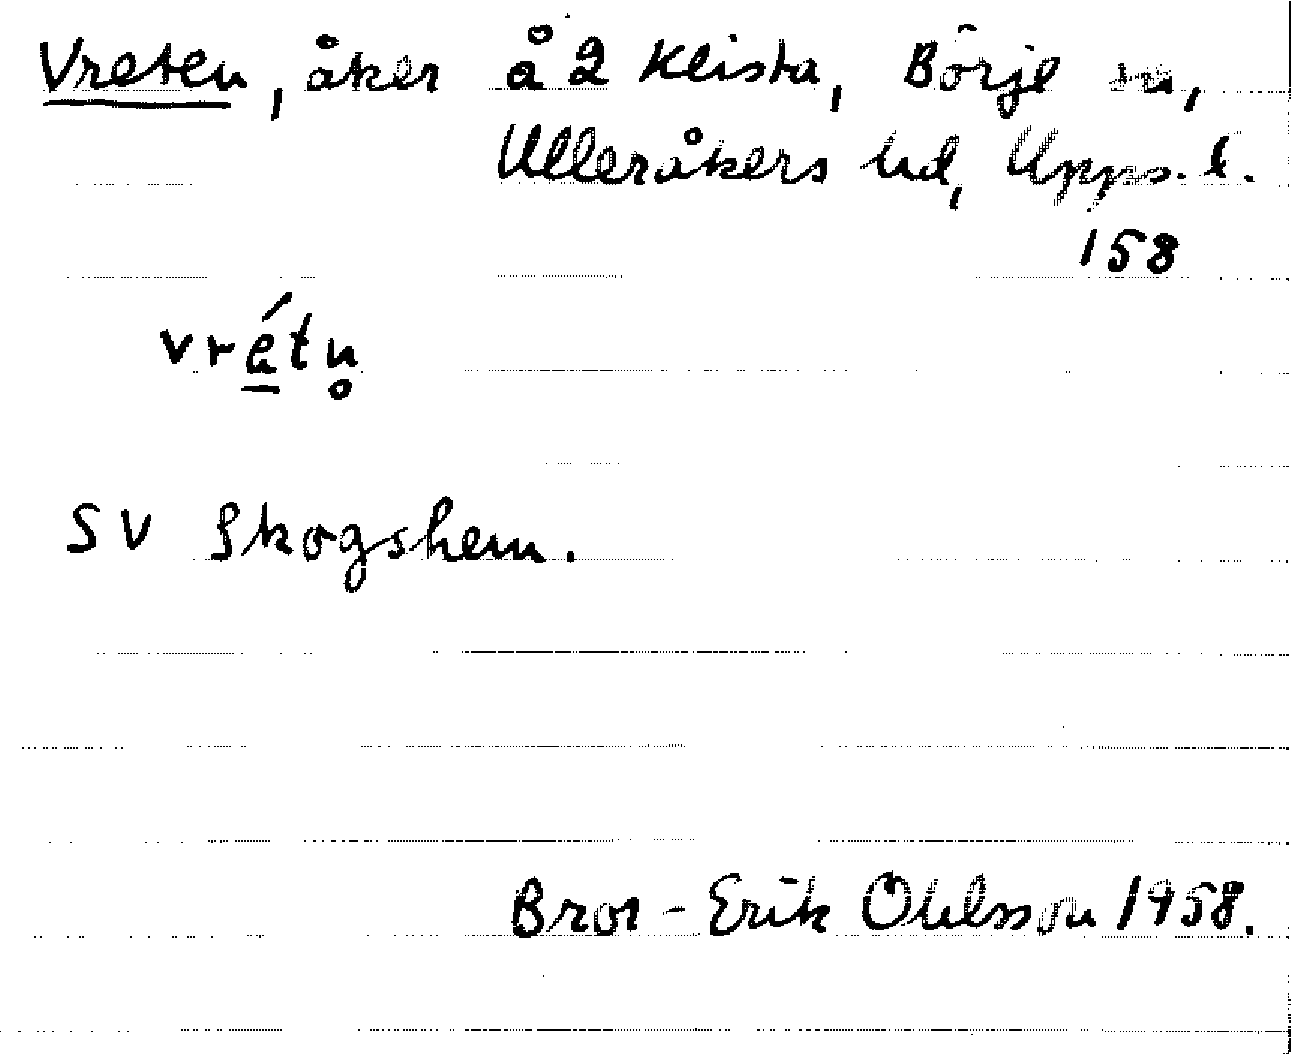 Vreten, åker å 2 Klista, Börje sn,
Ulleråkers hd, Upps. l.
158
vrétn̥
SV Skogshem.
Bror-Erik Ohlsson 1958.